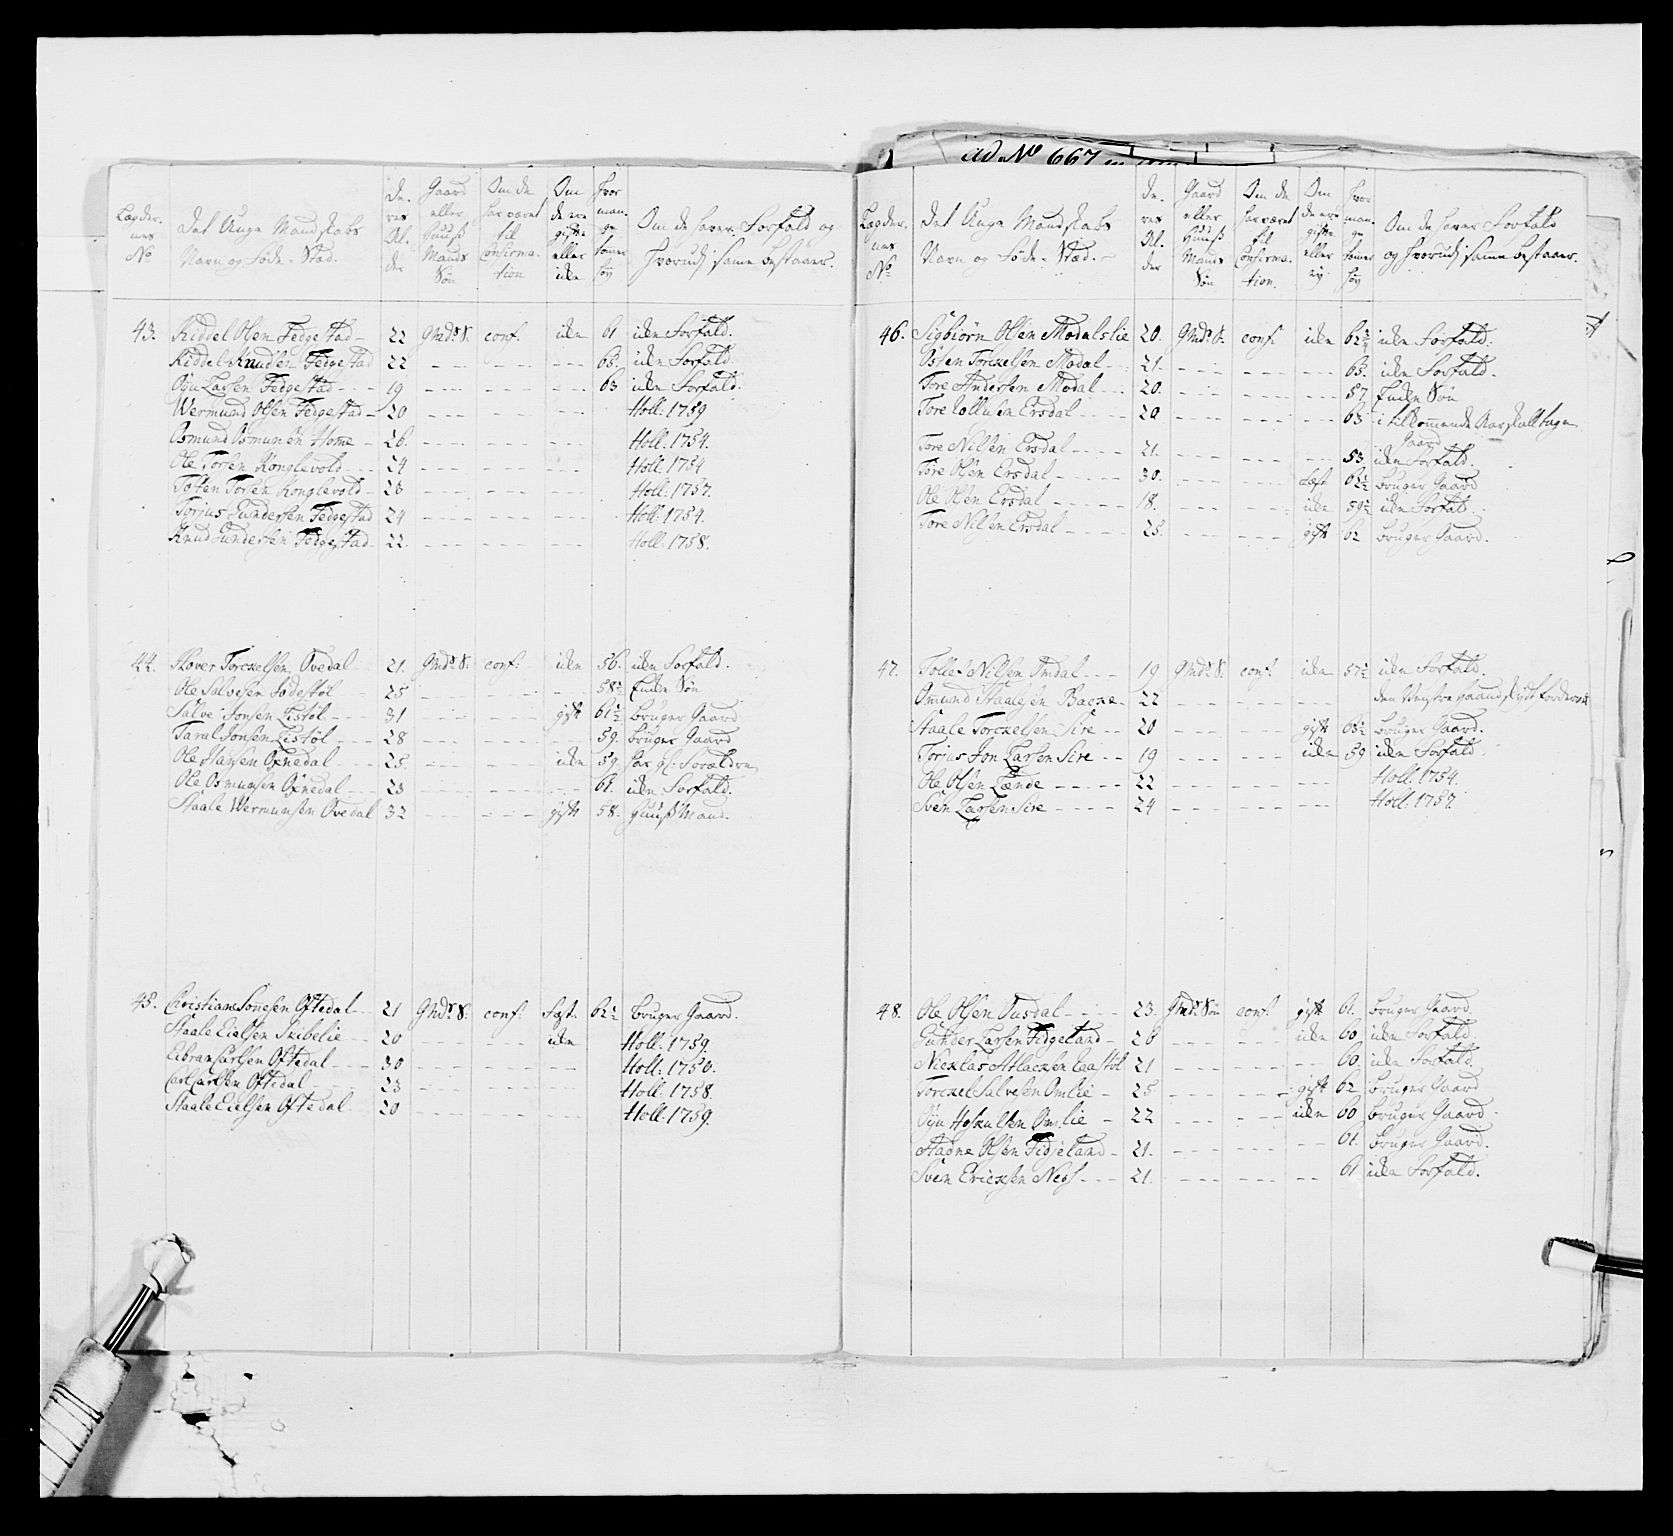 ad No 667
Lægder- nes No | Det Unge Mandskabs Navn og Føde-Stæd. | De- res Al- der | Gaard eller Huus Mands Søn | Om de har været til Confirma- tion | Om de ere gifte eller iken | Hvor man- ge tomer høy | Om de haver Forfald og hvorudj same bestaaer.
43. Kiddel Olsen Fedgestad 22 Gmds S. conf. iken 61 iken Forfald.
Kiddel Knudsen Fedgestad 22 65. iken Forfald.
Oyu Larsen Fedgestad 19 63 iken Forfald.
Wermund Olsen Fedgestad 20 Holl. 1759
Osmund Osmunsen Home 26. Holl. 1754.
Ole Torsen Konglevold 24 Holl: 1754
Tosten Torsen Konglevold 23 Holl: 1757.
Torjus Gundersen Fedgestad 24 Holl. 1754.
Knud Gundersen Fedgestad 22. Holl: 1758.
44. Sover Torckelsen Ovedal 21. Gmds S. conf: iken 56. iken Forfald.
Ole Salvesen Lodestøl 25 58½ Enke Søn
Salve Jonsen Listøl 31 gift 61½ bruger Gaard
Taral Jonsen Listøl 28 59. bruger Gaard
Ole Hansen Oxnedal 25. iken 59. har gl: Forældre
Ole Osmunsen Oxnedal 23 61. iken Forfald.
Staale Wermunsen Ovedal 32 gift 58. Huus Mand.
45. Christian Sonnesen Oftedal 21 Gmds S. conf: fæst. 62½ bruger Gaard.
Staale Eielsen Skibelie 20 iken Holl: 1759.
Eibran Carlsen Oftedal 30 Holl: 1750.
Carl Carlsen Oftedal 23 Holl: 1758.
Staale Eielsen Oftedal 20 Holl: 1759.
Lægder- nes No. | Det Unge Mandskabs Navn og Føde-Stæd. | De- res Al- der | Gaard eller Huus Mands Søn | Om de har været til Confirma- tion. | Om de ere gifte eller ey | Hvor man- ge tomer høy | Om de haver Forfald og hvorudj same bestaaer.
46. Sigbiørn Olsen Modalslie 20. Gmds S. conf. iken iken Forfald.
Osten Torckelsen Modal 21. 65. iken Forfald.
Tore Andersen Modal 20. 57 Enke Søn
Tore Ersdal 20 63 i tilkommende Aar skall tage
Gaard
Tore Nilsen Ersdal 21. 53 iken Forfald.
Tore Olsen Ersdal 30. fæst 62½ bruger Gaard
Ole Olsen Ersdal 18. iken 59½ iken Forfald.
Tore Nilsen Ersdal 25. gift 62 bruger Gaard.
47. Tollef Nilsen Omdal 19 Gmds S. conf. iken 57½ iken Forfald.
Omund Staalesen Backe 22 den Venstre haand
Staale Torckelsen Sire 20 gift 65½ bruger Gaard.
Torjus Jon Larsen Sire 19 iken 59 iken Forfald.
Ole Olsen Lænde 22 Holl. 1754.
Sven Larsen Sire 24 Holl. 1757.
48. Ole Olsen Ousdal 23. Gmds Søn conf. gift 61. bruger Gaard.
Gunder Larsen Fidgeland 20 iken 60 iken Forfald
Nicklas Atlacksen Eastøl 21 60. iken Forfald.
Torckel Salvesen Omlie 25. gift 62 bruger Gaard
Oyu Hoskulsen Omlie 22 iken 60 bruger Gaard
Aagne Olsen Fidjeland 21. 61. bruger Gaard.
Sven Ericksen Nees 21. 61 iken Forfald.